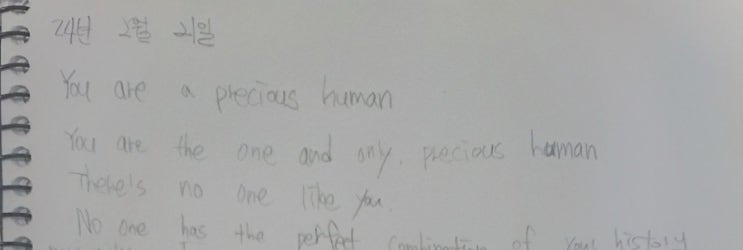 24년 2월 21일
You are a precious human
You are the one and only, precious human
There's no one like you.
No one has the perfect combination of your history